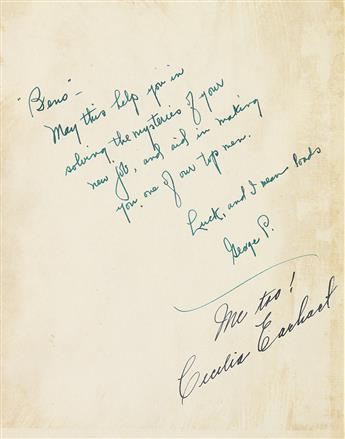 "Beno" -
May this help you in
solving the mysteries of your
new job, and aid in making
you one of our top men.
Luck, and I mean loads
George P.
Me too!
Cecilia Earhart